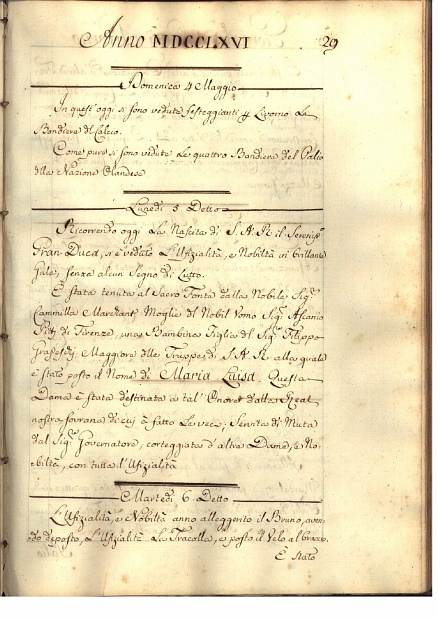 Anno MDCCLXVI 29
Domenica 4 Maggio
In quest'oggi si sono vedute festeggianti p Livorno Le
Bandiere del Calcio.
Come pure si sono vedute Le quattro Bandiere del Palio
della Nazione Olandese
Lunedì 5 Detto
Ricorrendo oggi La Nascita di S. A. R. il Sereniss.
Gran-Duca, si è veduto L'Ufizialità, e Nobiltà in brillante
Gala, senza alcun Segno di Lutto.
È stata tenuta al Sacro Fonte dalla Nobile Sig.
Cammilla Marchant Moglie del Nobil Uomo Sig. Ascanio
di Firenze, una Bambina Figlia del Sig. Filippo
Maggiore delle Truppe di S. A. R. alla quale
è stato posto il Nome di Maria Luisa. Questa
Dama è stata destinata a tal' Onore dalla Real
nostra Sovrana di cui è fatto Le veci, Servita di Muta
dal Sig. Governatore, corteggiata d'altre Dame, e No-
biltà, con tutta l'Ufizialità
Martedì 6. Detto
L'Ufizialità, e Nobiltà anno alleggerito il Bruno, aven-
do deposto, L'Ufizialità La Tracolla, e posto il Velo al braccio.
È Stato